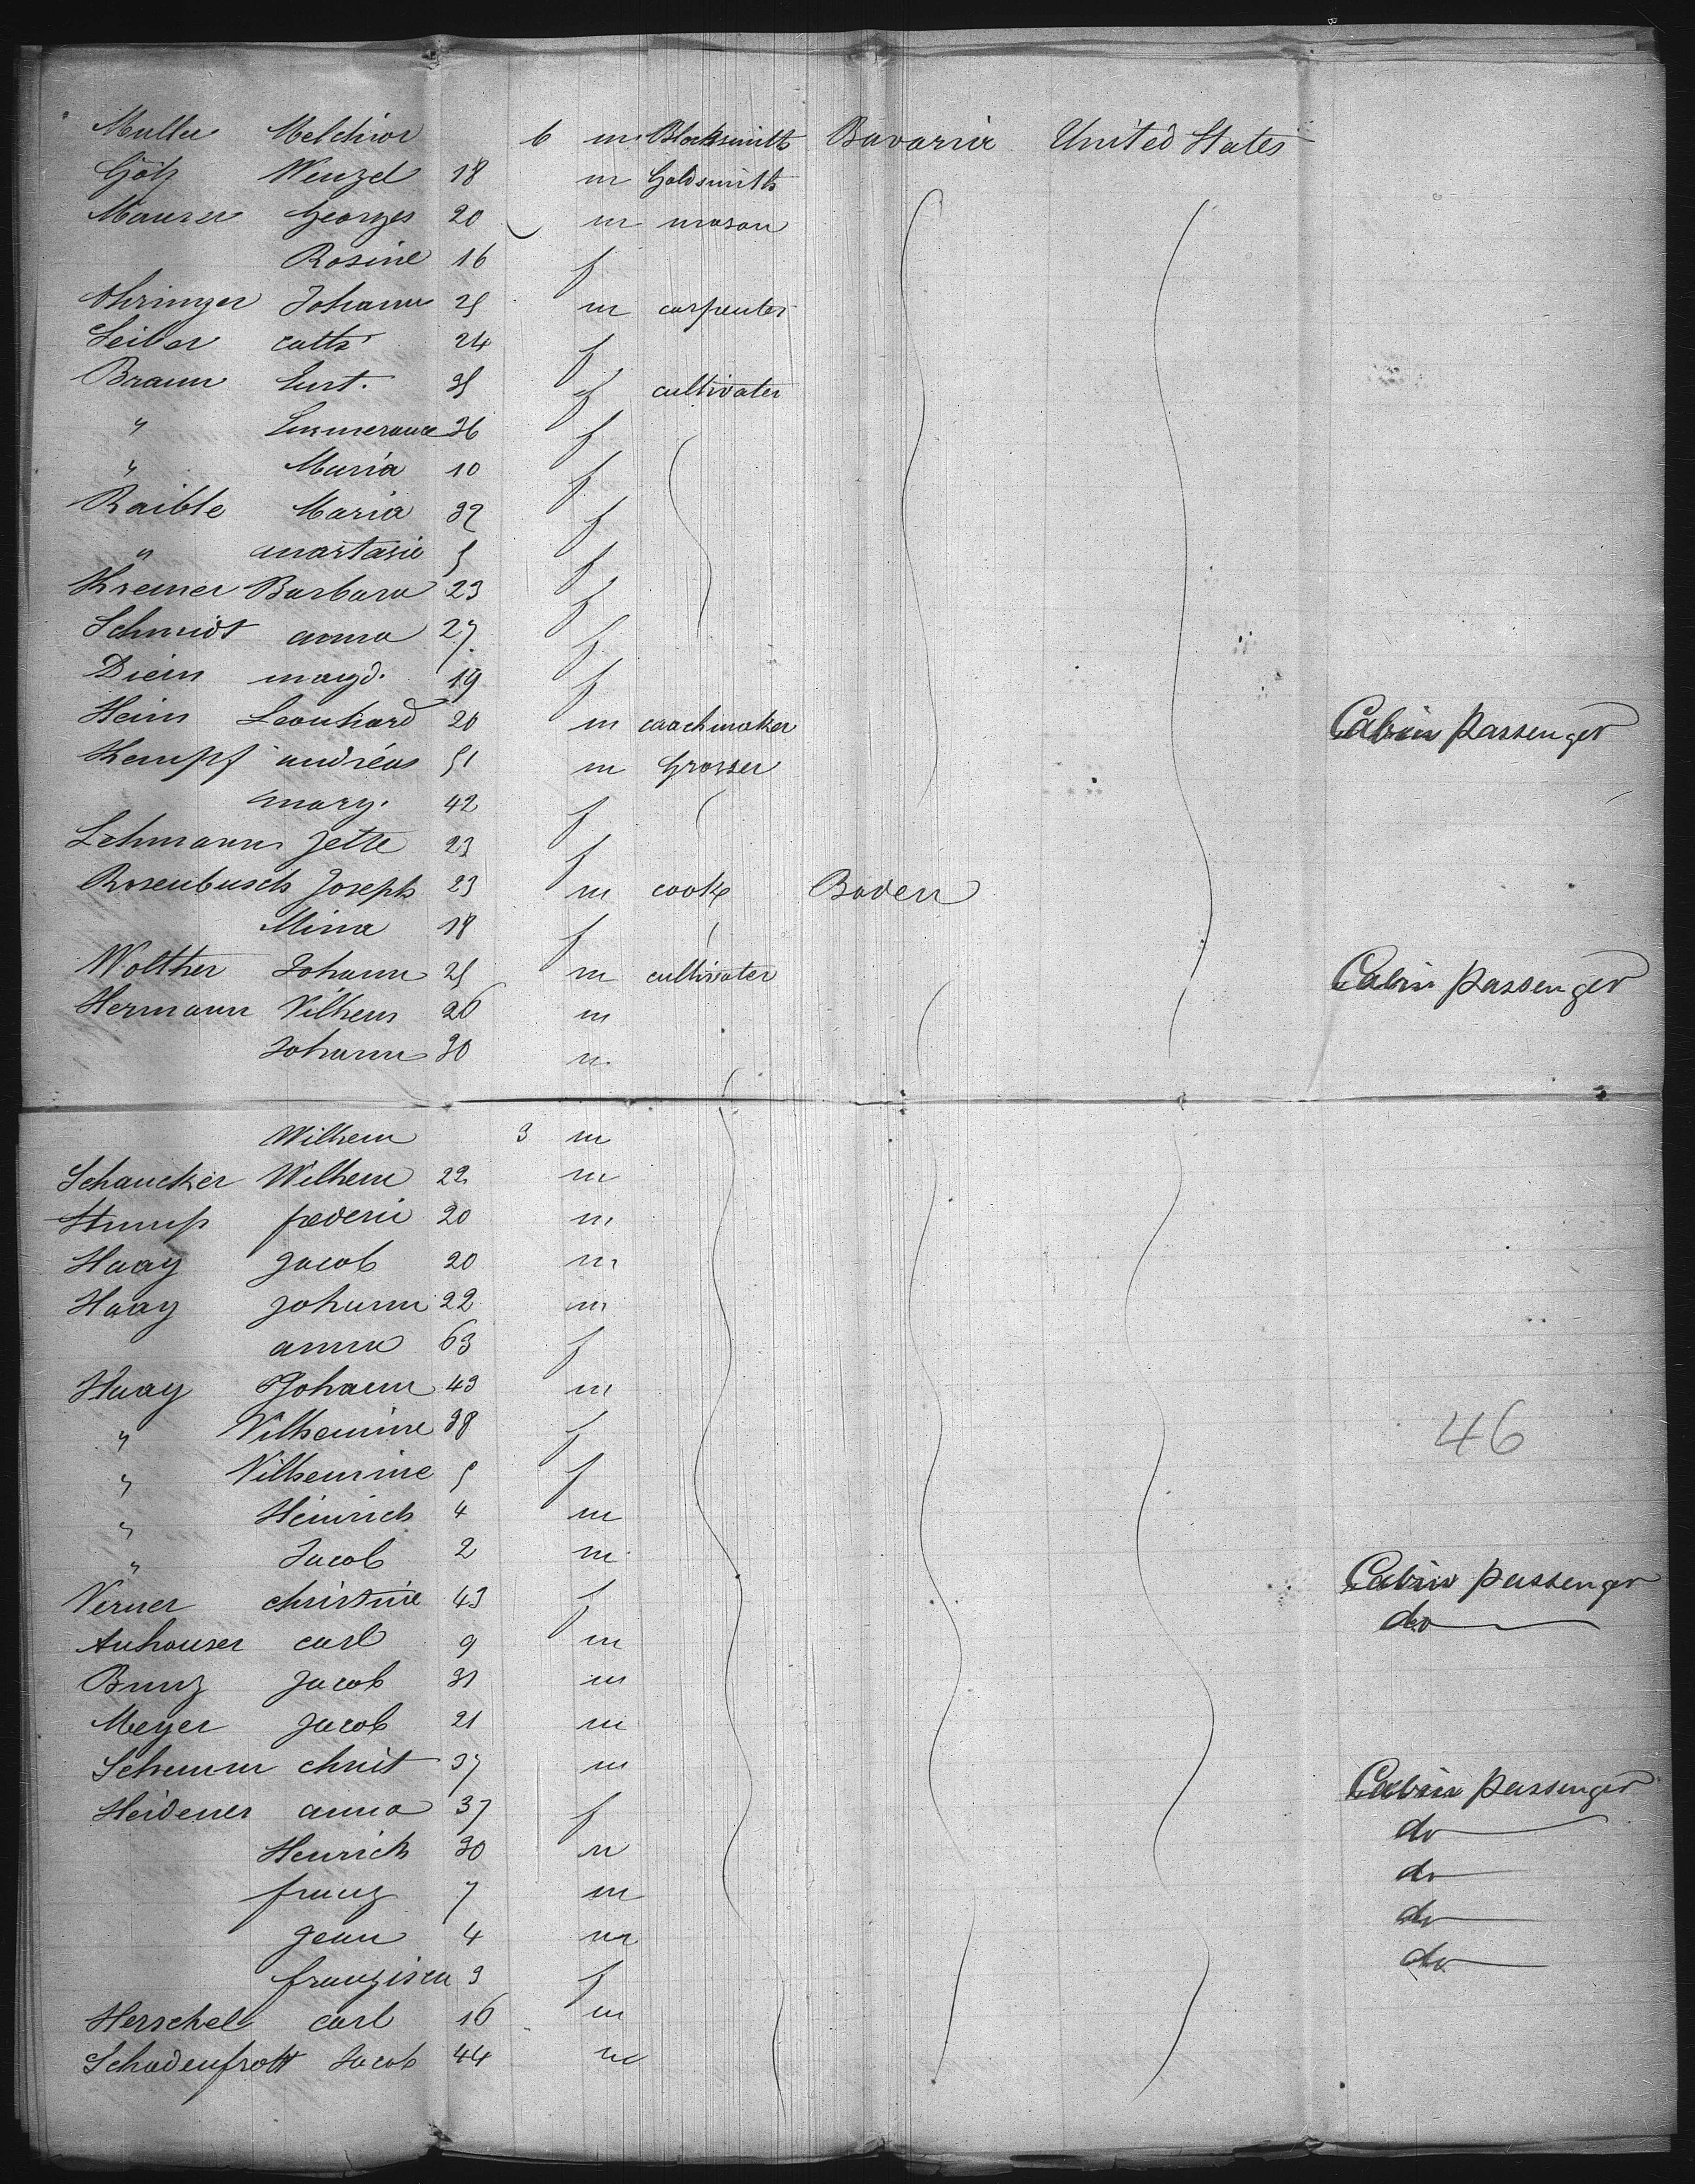 Muller Melchior 6 m Blacksmith Bavaria United States
Götz Wenzel 18 m Goldsmith
Maurer Georges 20 m mason
Rosine 16 f
Ohringer Johann 25 m carpenter
Seiber cath 24 f
Braun 35 f cultivater
" 36 f
" Maria 10 f
Raible Maria 32 f
" anastasie 5 f
Kremer Barbara 23 f
Schmidt anna 27 f
Diem magd. 19 f
Heim Leonhard 20 m coachmaker Cabin passenger
Kempf andréas 51 m Grosser
marg. 42 f
Lehmann Jette 23 f
Rosenbusch Joseph 23 m cook Baden
Mina 18 f
Wolther Johann 25 m cultivater Cabin passenger
Hermann Vilhem 26 m
Johann 30 m
Wilhem 3 m
Schaucker Wilhem 22 m
Stump 20 m
Haag Jacob 20 m
Haag Johann 22 m
anna 63 f
Haag Johann 43 m
" Vilhemine 38 f
46
" Vilhemine 5 f
" Heinrich 4 m
" Jacob 2 m
Verner christine 43 f Cabin passenger
Anhouser carl 9 m do
Bunz Jacob 31 m
Meyer Jacob 21 m
Schemm christ 37 m Cabin passenger
Heidener anna 37 f do
Henrich 30 m do
franz 7 m do
Jean 4 m do
franzisca 3 f
Herschel carl 16 m
Schadenfrott Jacob 44 m